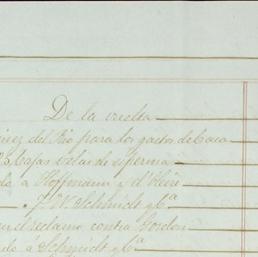 De la vuelta
del Rio para los gastos de Casa
Cajas velas de esperma
à Hoffmann y
J. W. Schmidt y Cª
el reclamo contra Gordon
à Schmidt y Cª